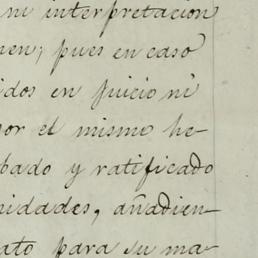 ni interpretacion
nen; pues en caso
idos en juicio ni
por el mismo he-
bado y ratificado
nidades, añadien-
ato para su ma-